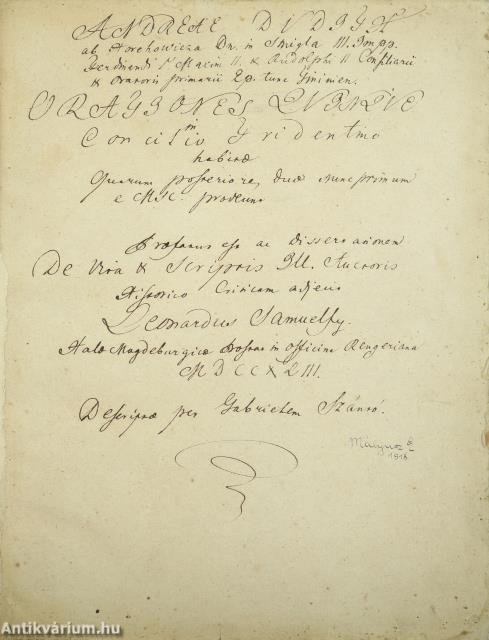 ANDREAE DUDITH
ab Horehowicza Dn. in Smigla III. Impp.
Ferdinandi I Maxim II. & Rudolphi II Consiliarii
& Oratoris primarii Ep. tunc Tininien.
ORATIONES QUINQUE
in
Concilio Tridentino
habitae
Quarum posteriores duae nunc primum
e MSC. prodeunt
Praefatus est ac Dissertationem
De Vita & Scriptis Ill. Auctoris
Historico Criticam adjecit
Leonardus Samuelfy.
Halae Magdeburgicae Prostat in officina Rengeriana
MDCCXLIII.
Descriptae per Gabrielem Szántó.
1918
Antikvárium.hu